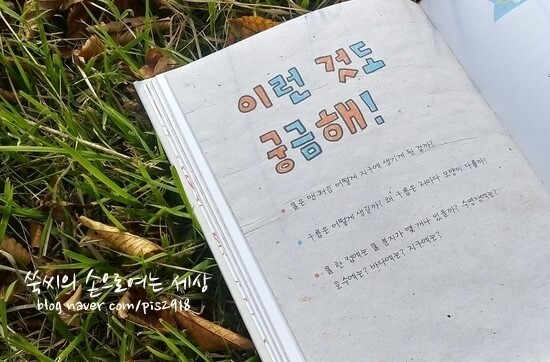 이런 것도
궁금해!
물은 맨 처음 어떻게 지구에 생기게 된 걸까?
구름은 어떻게 생길까? 왜 구름은 저마다 모양이 다를까?
물 한 컵에는 물 분자가 몇 개나 있을까? 수영장에는?
호수에는? 바다에는? 지구에는?
쑥씨의 손으로여는 세상
blog.naver.com/pis2918